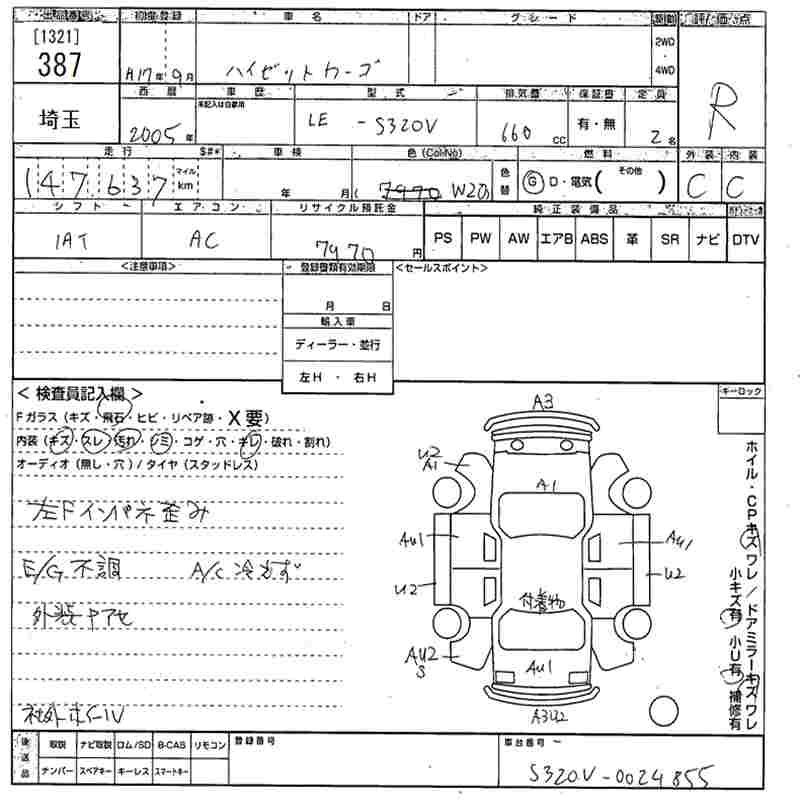 出品番号 初度登録 車名 ドア グレード 駆動 評価点
[1321]
387 H17年9月 ハイゼットカーゴ 2WD・4WD R
埼玉 西暦 車歴 型式 排気量 保証書 定員
未記入は自家用
2005年 LE-S320V 660cc 有・無 2名
走行 $#* 車検 色(Col-No) 燃料 外装 内装
147,637 マイル km 年 月( 7970 W20 色替 G D・電気( その他 ) C C
シフト エアコン リサイクル預託金 純正装備品
IAT AC 7970円 PS PW AW エアB ABS 革 SR ナビ DTV
<注意事項> 登録書類有効期限 <セールスポイント>
月 日
輸入車
ディーラー・並行
左H・右H
<検査員記入欄> キーロック
Fガラス(キズ・飛石・ヒビ・リペア跡・X要)
内装(キズ・スレ・汚れ・シミ・コゲ・穴・キレ・破れ・割れ)
オーディオ(無し・穴)/タイヤ(スタッドレス)
左Fインパネ歪み
E/G不調 A/C冷えず
外装ヤケ
社外ホイール
A3
U2
A1
A1
AU1 AU1
U2 U2
付着物
AU2
S
AU1
A3U2
ホイル・CPキズワレ/ドアミラーキズワレ
小キズ有 小U有 補修有
後送品 取説 ナビ取説 ロム/SD B-CAS リモコン 登録番号 車台番号
ナンバー スペアキー キーレス スマートキー S320V-0024855